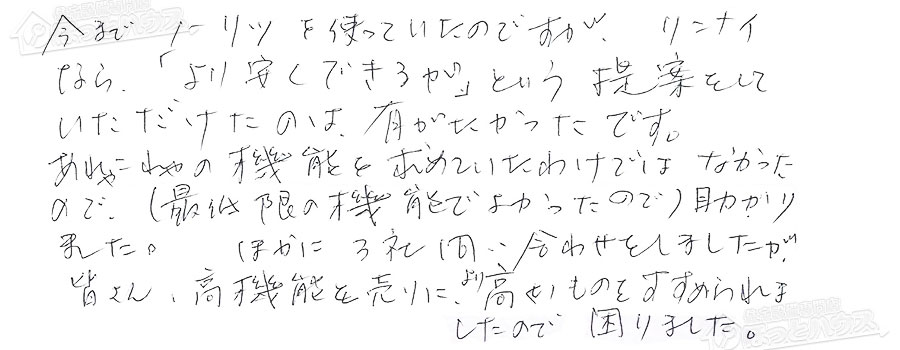 今まで ノーリツ を使っていたのですが、 リンナイ
なら、「より安くできるが」という 提案をして
いただけたのは、有がたかったです。
あれやこれやの機能を求めていたわけでは なかった
ので、(最低限の機能でよかったので)助かり
ました。 ほかに 3社 問い合わせをしましたが、
皆さん、高機能を売りに、より高いものをすすめられま
したので 困りました。